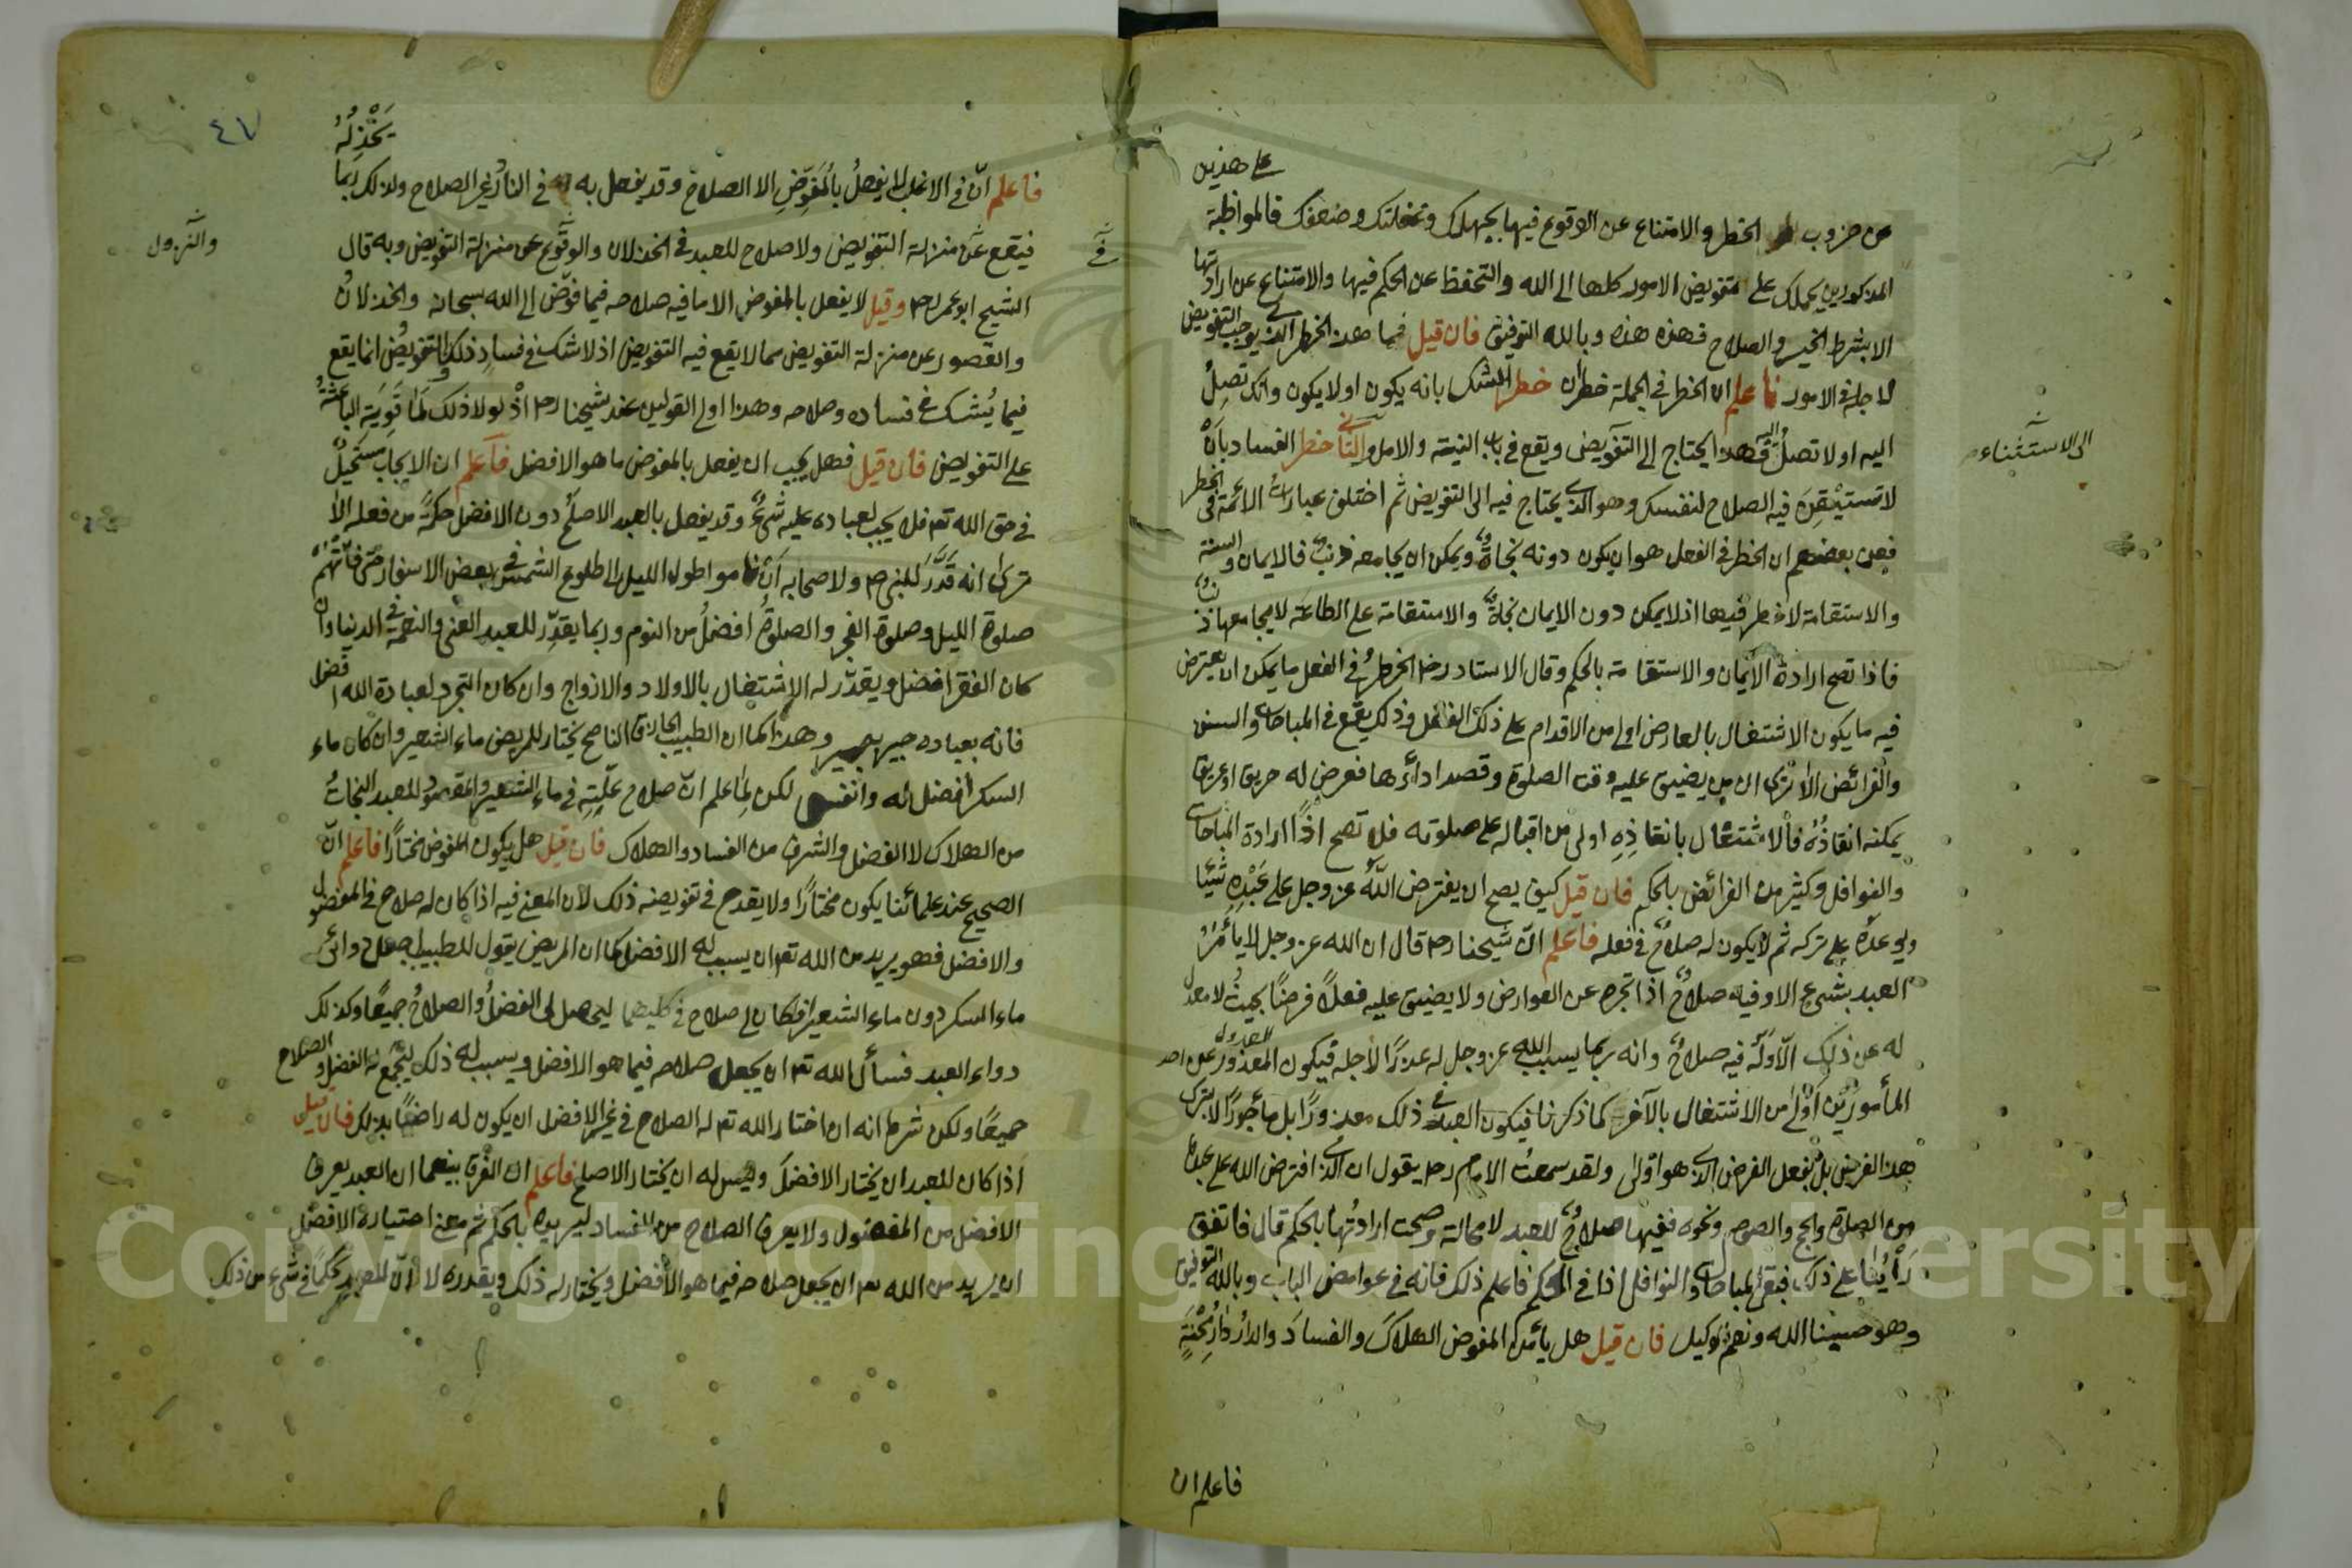 على هذين
عن ضروب الخطر والامتناع عن الوقوع فيها بجهلك وغفلتك وضعفك فالمواظبة
المذكورين يحملك على تفويض الامور كلها الى الله والتحفظ عن الحكم فيها والامتناع عن ارادتها
الا بشرط الخير والصلاح فهذه هذه وبالله التوفيق فان قيل فما هذا الخطر الذي يوجب التفويض
لاجله في الامور فاعلم ان الخطر في الجملة خطران خطر الشك بانه يكون او لا يكون وانك تصل
اليه او لا تصل اليه فهذا يحتاج الى التفويض ويقع في باب النية والامل والثاني خطر الفساد بان
الى الاستثناء
لا تستيقن فيه الصلاح لنفسك وهو الذي يحتاج فيه الى التفويض ثم اختلف عبارات الائمة في الخطر
فعن بعضهم ان الخطر في الفعل هو ان يكون دونه نجاة ويمكن ان يجامعه ذنب فالايمان والسنة
والاستقامة لا خطر فيها اذ لا يمكن دون الايمان نجاة والاستقامة على الطاعة لا يجامعها ذنب
فاذا تصح ارادة الايمان والاستقامة بالحكم وقال الاستاد رحم الخطر في الفعل ما يمكن ان يعترض
فيه ما يكون الاشتغال بالعارض اولى من الاقدام على ذلك الفعل وذلك يقع في المباحات والسنن
والفرائض الا ترى ان من يضيق عليه وقت الصلوة وقصد اداءها فعرض له حريق او غريق
يمكنه انقاذه فالاشتغال بانقاذه اولى من اقباله على صلوته فلا تصح اذا ارادة المباحات
والنوافل وكثير من الفرائض بالحكم فان قيل كيف يصح ان يفترض الله عز وجل على عبده شيئا
ويوعده على تركه ثم لا يكون له صلاح في فعله فاعلم ان شيخنا رحم قال ان الله عز وجل لا يأمر
العبد بشيء الا وفيه صلاح اذا تجرد عن العوارض ولا يضيق عليه فعلا فرضا بحيث لا معدل
له عن ذلك الا وله فيه صلاح وانه ربما يسبب الله عز وجل له عذرا لاجله فيكون العدول عن احد
المأمورين اولى من الاشتغال بالآخر كما ذكرنا فيكون العبد في ذلك معذورا بل مأجورا لا بترك
هذا الفرض بل بفعل الفرض الذي هو اولى ولقد سمعت الامام رحم يقول ان الذي افترض الله على عباده
من الصلوة والحج والصوم ونحوه ففيها صلاح للعبد لا محالة وصحت ارادتها بالحكم قال فاتفق
رأينا على ذلك فبقي المباحات والنوافل اذا في الحكم فاعلم ذلك فانه في غوامض الباب وبالله التوفيق
وهو حسبنا الله ونعم الوكيل فان قيل هل يأمن المفوض الهلاك والفساد والدار دار محنة
فاعلم ان
٤٧
يخذله
فاعلم ان في الاغلب لا يفعل بالمفوض الا الصلاح وقد يفعل به في النادر غير الصلاح ولذلك ربما
فيقع عن منزلة التفويض ولا صلاح للعبد في الخذلان والوقوع عن منزلة التفويض وبه قال
والنزول
الشيخ ابو عمر رحم وقيل لا يفعل بالمفوض الا ما فيه صلاحه فيما فوض الى الله سبحانه والخذلان
والقصور عن منزلة التفويض مما لا يقع فيه التفويض اذ لا شك في فساد ذلك والتفويض انما يقع
فيما يشك في فساده وصلاحه وهذا اولى القولين عند شيخنا رحم اذ لولا ذلك لما قوية الباعثة
على التفويض فان قيل فهل يجب ان يفعل بالمفوض ما هو الافضل فاعلم ان الايجاب مستحيل
في حق الله تع فلا يجب لعباده عليه شيء وقد يفعل بالعبد الاصلح دون الافضل حكمة من فعله الا
ترى انه قدر للنبي عم ولاصحابه ان ناموا طول الليل الى طلوع الشمس في بعض الاسفار حتى فاتتهم
صلوة الليل وصلوة الفجر والصلوة افضل من النوم وربما يقدر للعبد الغنى والنعمة في الدنيا وان
كان الفقر افضل ويقدر له الاشتغال بالاولاد والازواج وان كان التجرد لعبادة الله افضل
فانه بعباده خبير بصير وهذا كما ان الطبيب الحاذق الناصح يختار للمريض ماء الشعير وان كان ماء
السكر افضل له وانفس لكن لما علم ان صلاح علته في ماء الشعير والمقصود للعبد النجات
من الهلاك لا الفضل والشرف من الفساد والهلاك فان قيل هل يكون المفوض مختارا فاعلم ان
الصحيح عند علمائنا يكون مختارا ولا يقدح في تفويضه ذلك لان المعنى فيه اذا كان له صلاح في المفضول
والافضل فهو يريد من الله تع ان يسبب له الافضل كما ان المريض يقول للطبيب اجعل دوائى
ماء السكر دون ماء الشعير اذ كان لى صلاح في كليهما ليحصل لى الفضل والصلاح جميعا وكذلك
دواء العبد فسأل الله تع ان يجعل صلاحه فيما هو الافضل ويسبب له ذلك ليجمع له الفضل والصلاح
جميعا ولكن شرط انه ان اختار الله تع له الصلاح في غير الافضل ان يكون له راضيا بذلك فان قيل
اذا كان للعبد ان يختار الافضل وليس له ان يختار الاصلح فاعلم ان الفرق بينهما ان العبد يعرف
الافضل من المفضول ولا يعرف الصلاح من الفساد ليريده بالحكم ثم معنى اختياره الافضل
ان يريد من الله تع ان يجعل صلاحه فيما هو الافضل ويختار له ذلك ويقدره لا ان للعبد تحكما في شيء من ذلك
Copyright © King Saud University